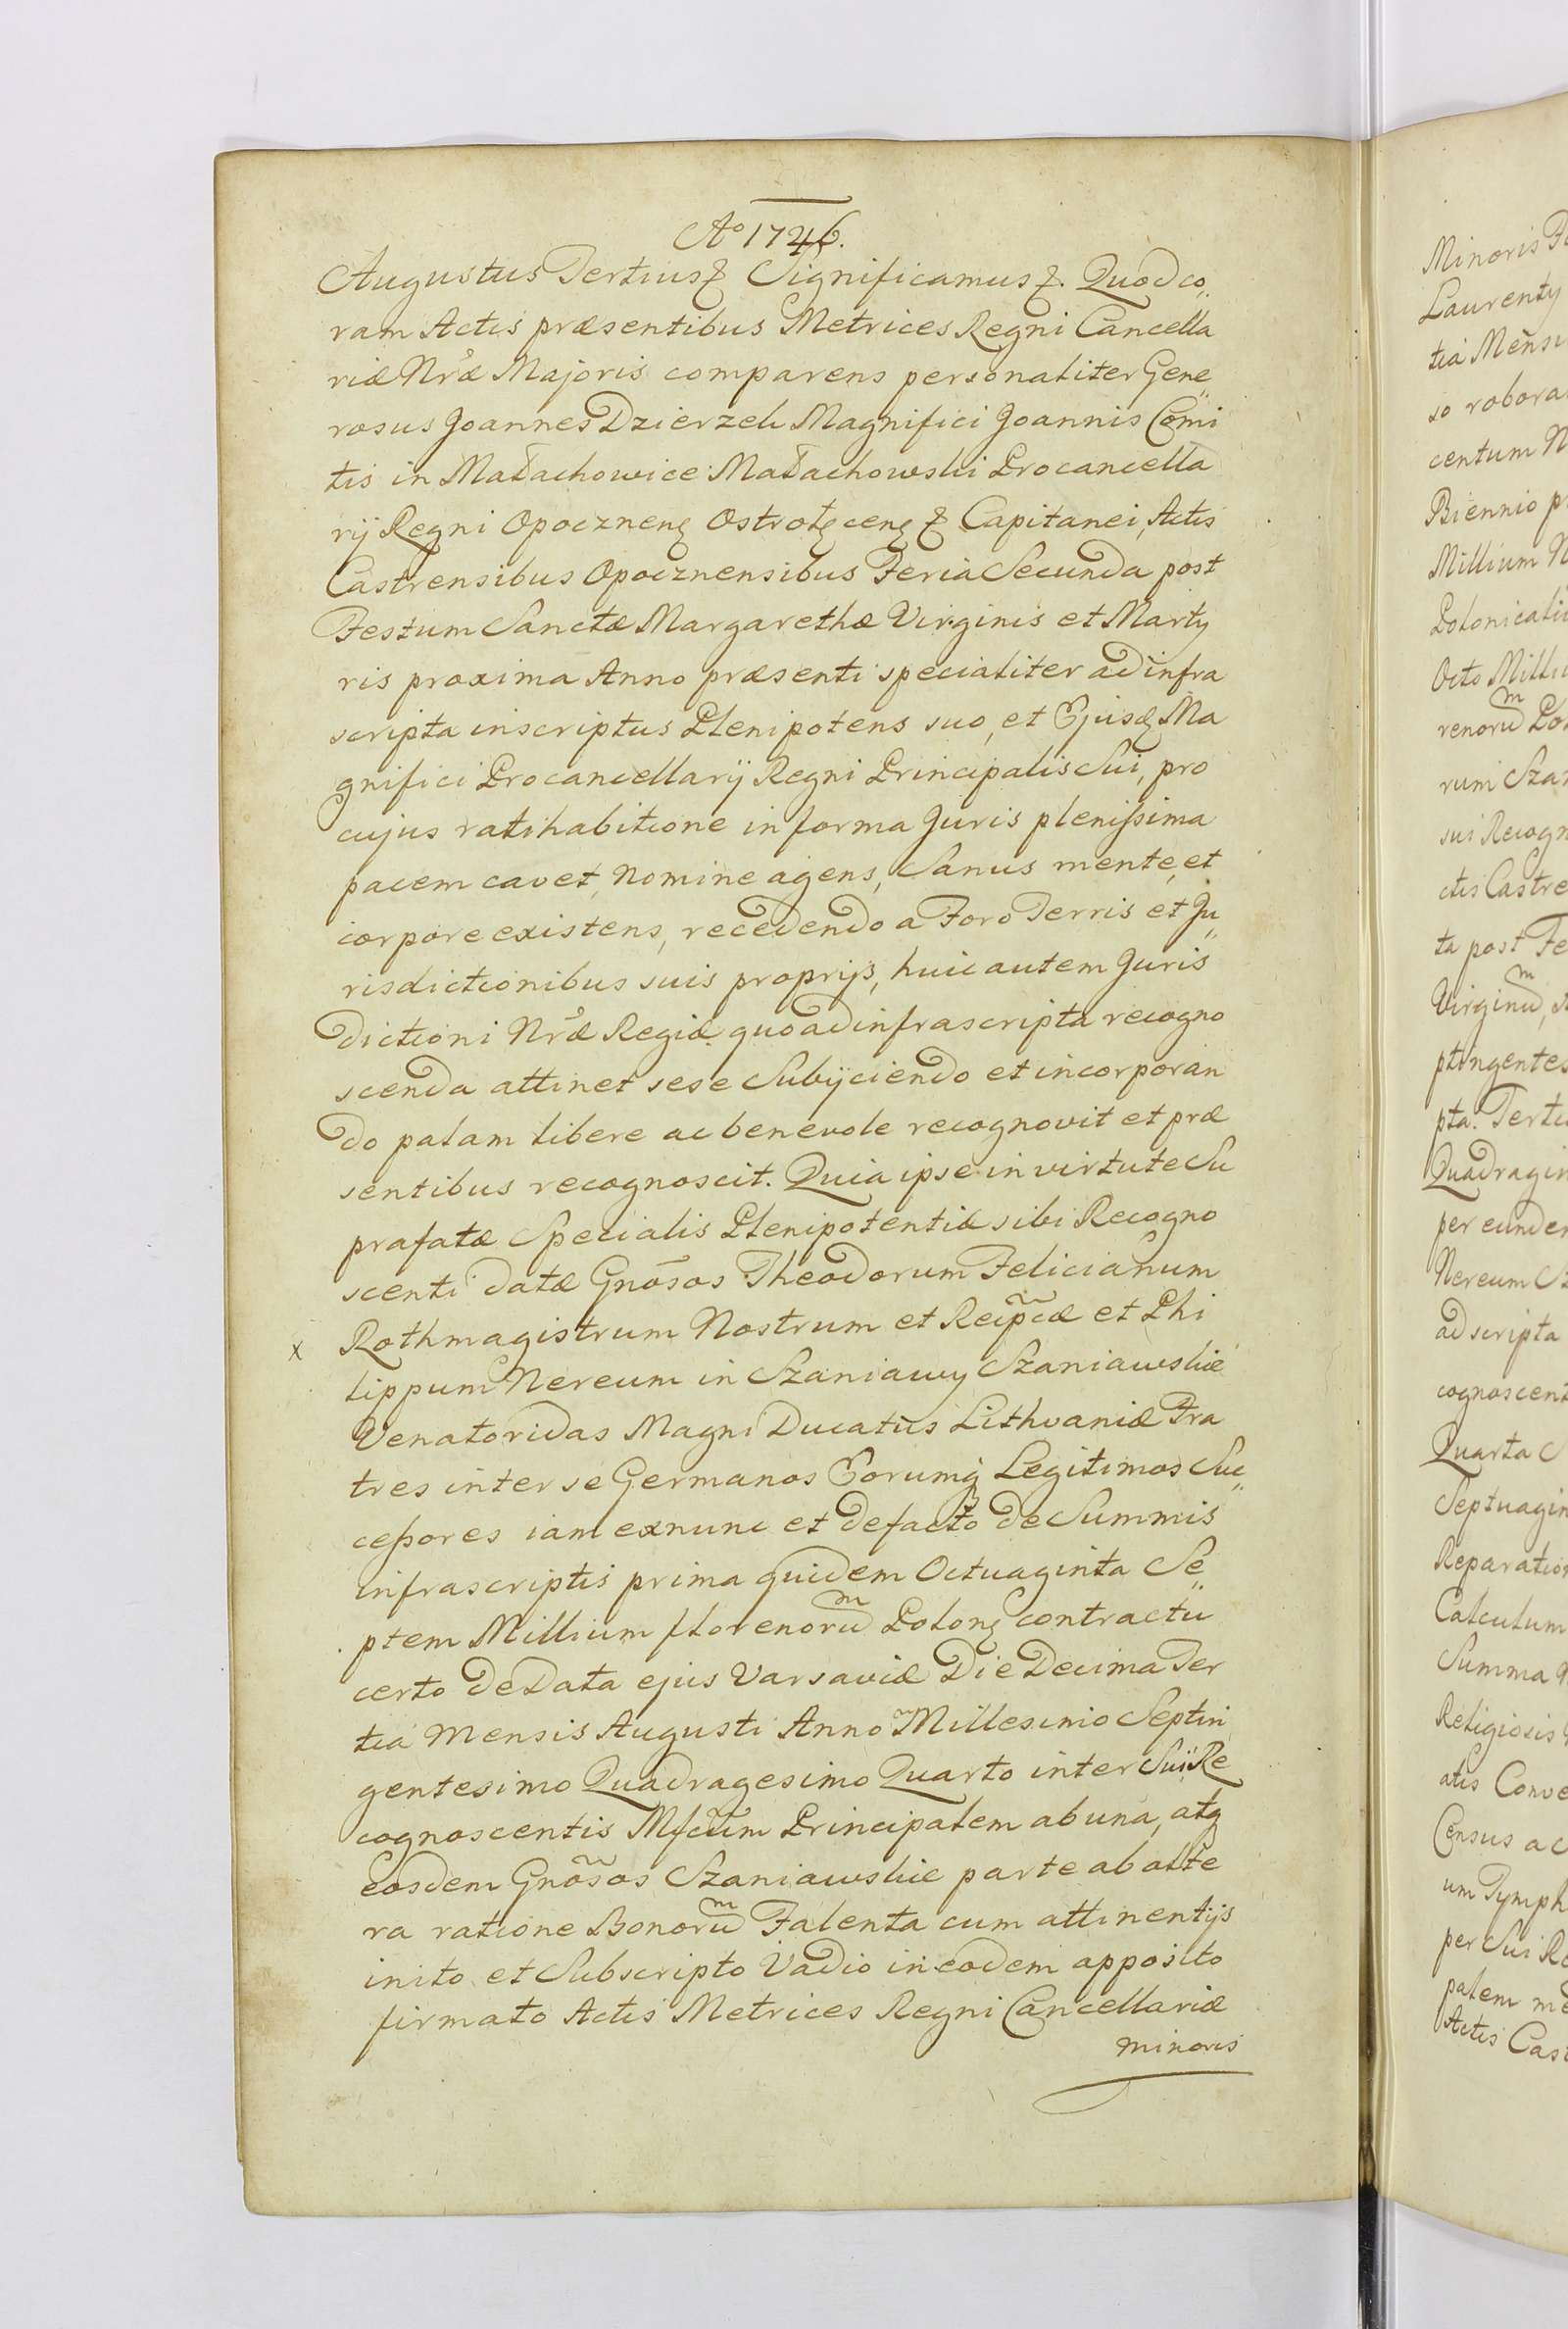 Aº 1746.
Augustus Tertius & Significamus &. Quod co„
ram Actis præsentibus Metrices Regni Cancella
riæ Nræ Majoris comparens personaliter Gene„
rosus Joannes Dzierzek Magnifici Joannis Comi
tis in Małachowice Małachowski Procancella
rij Regni Opocznen Ostroł cen & Capitanei, Actis
Castrensibus Opocznensibus Feria Secunda post
Festum Sanctæ Margarethæ Virginis et Marty
ris proxima Anno præsenti specialiter ad infra
scripta inscriptus Plenipotens suo, et Ejusd Ma
gnifici Procancellarij Regni Principalis Sui, pro
cujus ratihabitione in forma Juris plenissima
pacem cavet, nomine agens, Sanus mente, et
corpore existens, recedendo a Foro Terris et Ju„
risdictionibus suis proprijs, huic autem Juris
dictioni Nræ Regiæ quo ad infrascripta recogno
scenda attinet sese Subijciendo et incorporan
do palam libere ac benevole recognovit et præ
sentibus recognoscit. Quia ipse in virtute Su
prafatæ Specialis Plenipotentiæ sibi Recogno
scenti datæ Gnosos Theodorum Felicianum
x Rothmagistrum Nostrum et Reipcæ et Phi
lippum Nereum in Szaniawy Szaniawskie
Venatoridas Magni Ducatus Lithvaniæ Fra
tres inter se Germanos Eorumq Legitimos Suc„
cessores iam exnunc et defacto de Summis
infrascriptis prima quidem Octuaginta Se„
ptem Millium florenorum Polon contractu
certo de Data ejus Varsaviæ Die Decima Ter
tia Mensis Augusti Anno Millesimo Septin
gentesimo Quadragesimo Quarto inter Sui Re
cognoscentis Mfcum Principalem ab una, atq
eosdem Gnosos Szaniawskie parte ab alte
ra ratione Bonorum Falenta cum attinentijs
inito et Subscripto Vadio in eodem apposito
firmato Actis Metrices Regni Cancellariæ
minoris
Minoris
Laurenty
tia Mensi
so robora
centum
Biennio
Millium
Polonicali
Octo Milli
renorum
rum Szan
sui Recogn
ctis Castre
ta post Fe
Virginum,
ptingentes
pta. Terti
Quadragin
per eunde
Nereum
adscripta
cognoscent
Quarta
Septuagin
Reparatio
Calculum
Summa
Religiosis
atis Conve
Census
um Tymph
per Sui Re
palem me
Actis Cas